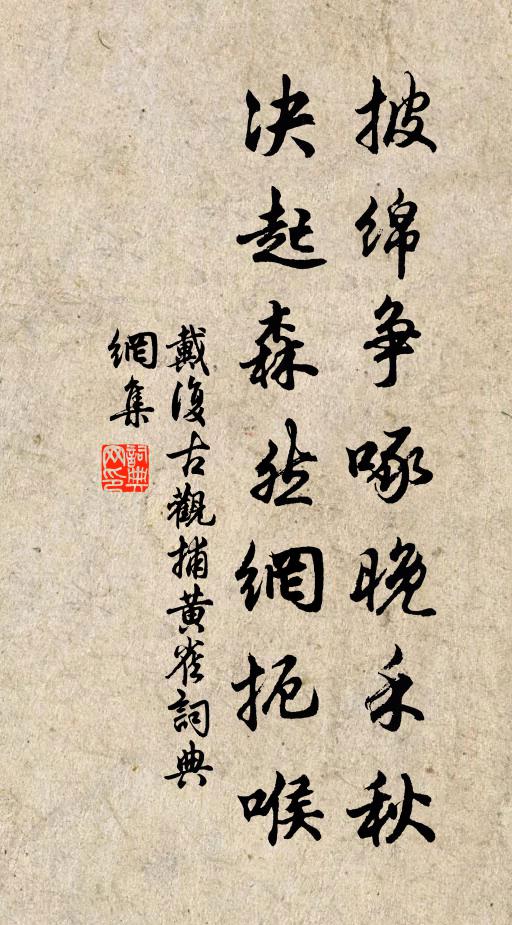 披綿争啄晚禾秋
决起森然網扼喉
戴復古觀捕黄雀詞典
網集
詞典
网印